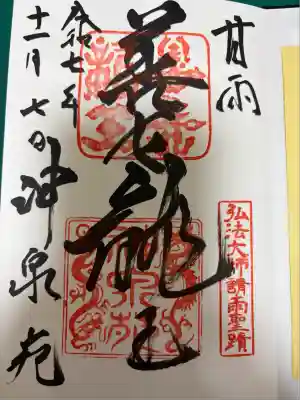 甘雨
弘法大師請雨聖蹟
善女龍王
令和七年
十一月七日 神泉苑